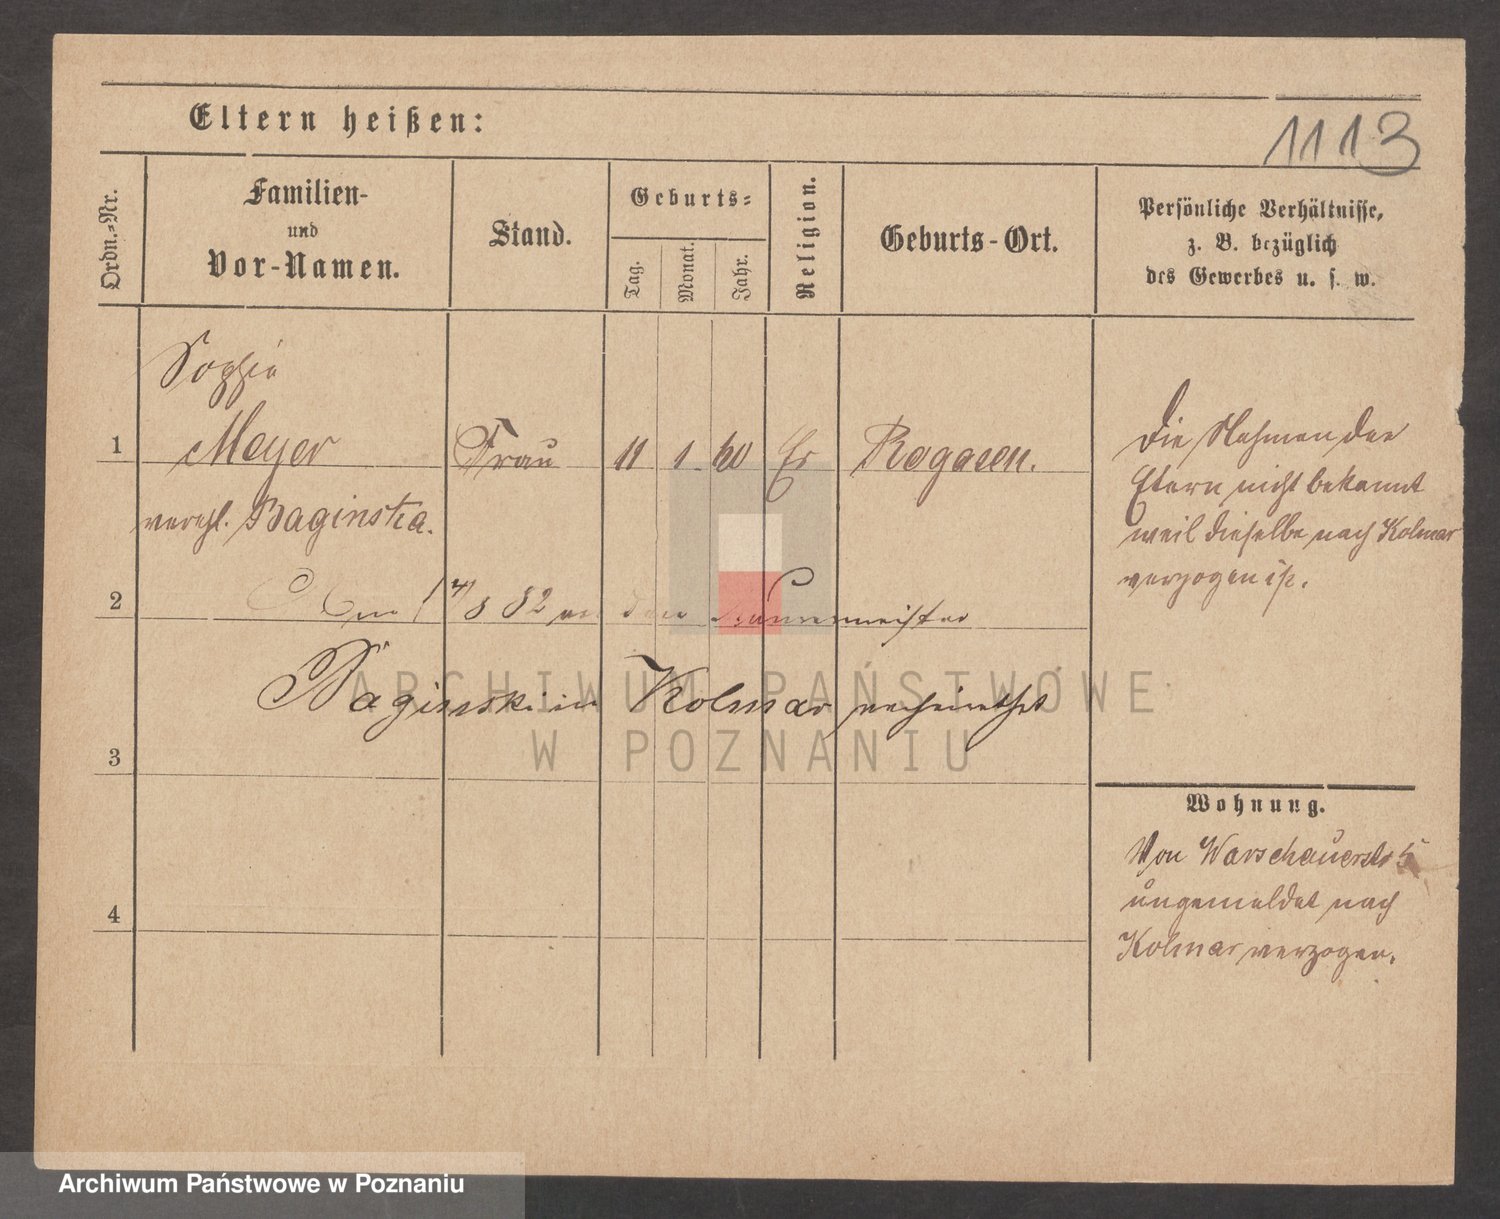 Eltern heißen:
1113
Ordn.-Nr.
Familien-
und
Vor-Namen.
Stand.
Geburts-
Tag.
Monat.
Jahr.
Religion.
Geburts-Ort.
Persönliche Verhältnisse,
z. B. bezüglich
des Gewerbes u. s. w.
Sophie
1 Meyer Frau 11 1 60 Ev Rogasen.
verehl. Baginska.
Die Nahmen der
Etern nicht bekannt
weil dieselbe nach Kolmar
verzogen ist.
2 8 82 den
Baginski in Kolmar verheirathet
3
Wohnung.
Von Warschauerstr 5
ungemeldet nach
Kolmar verzogen.
4
ARCHIWUM PAŃSTWOWE
W POZNANIU
Archiwum Państwowe w Poznaniu